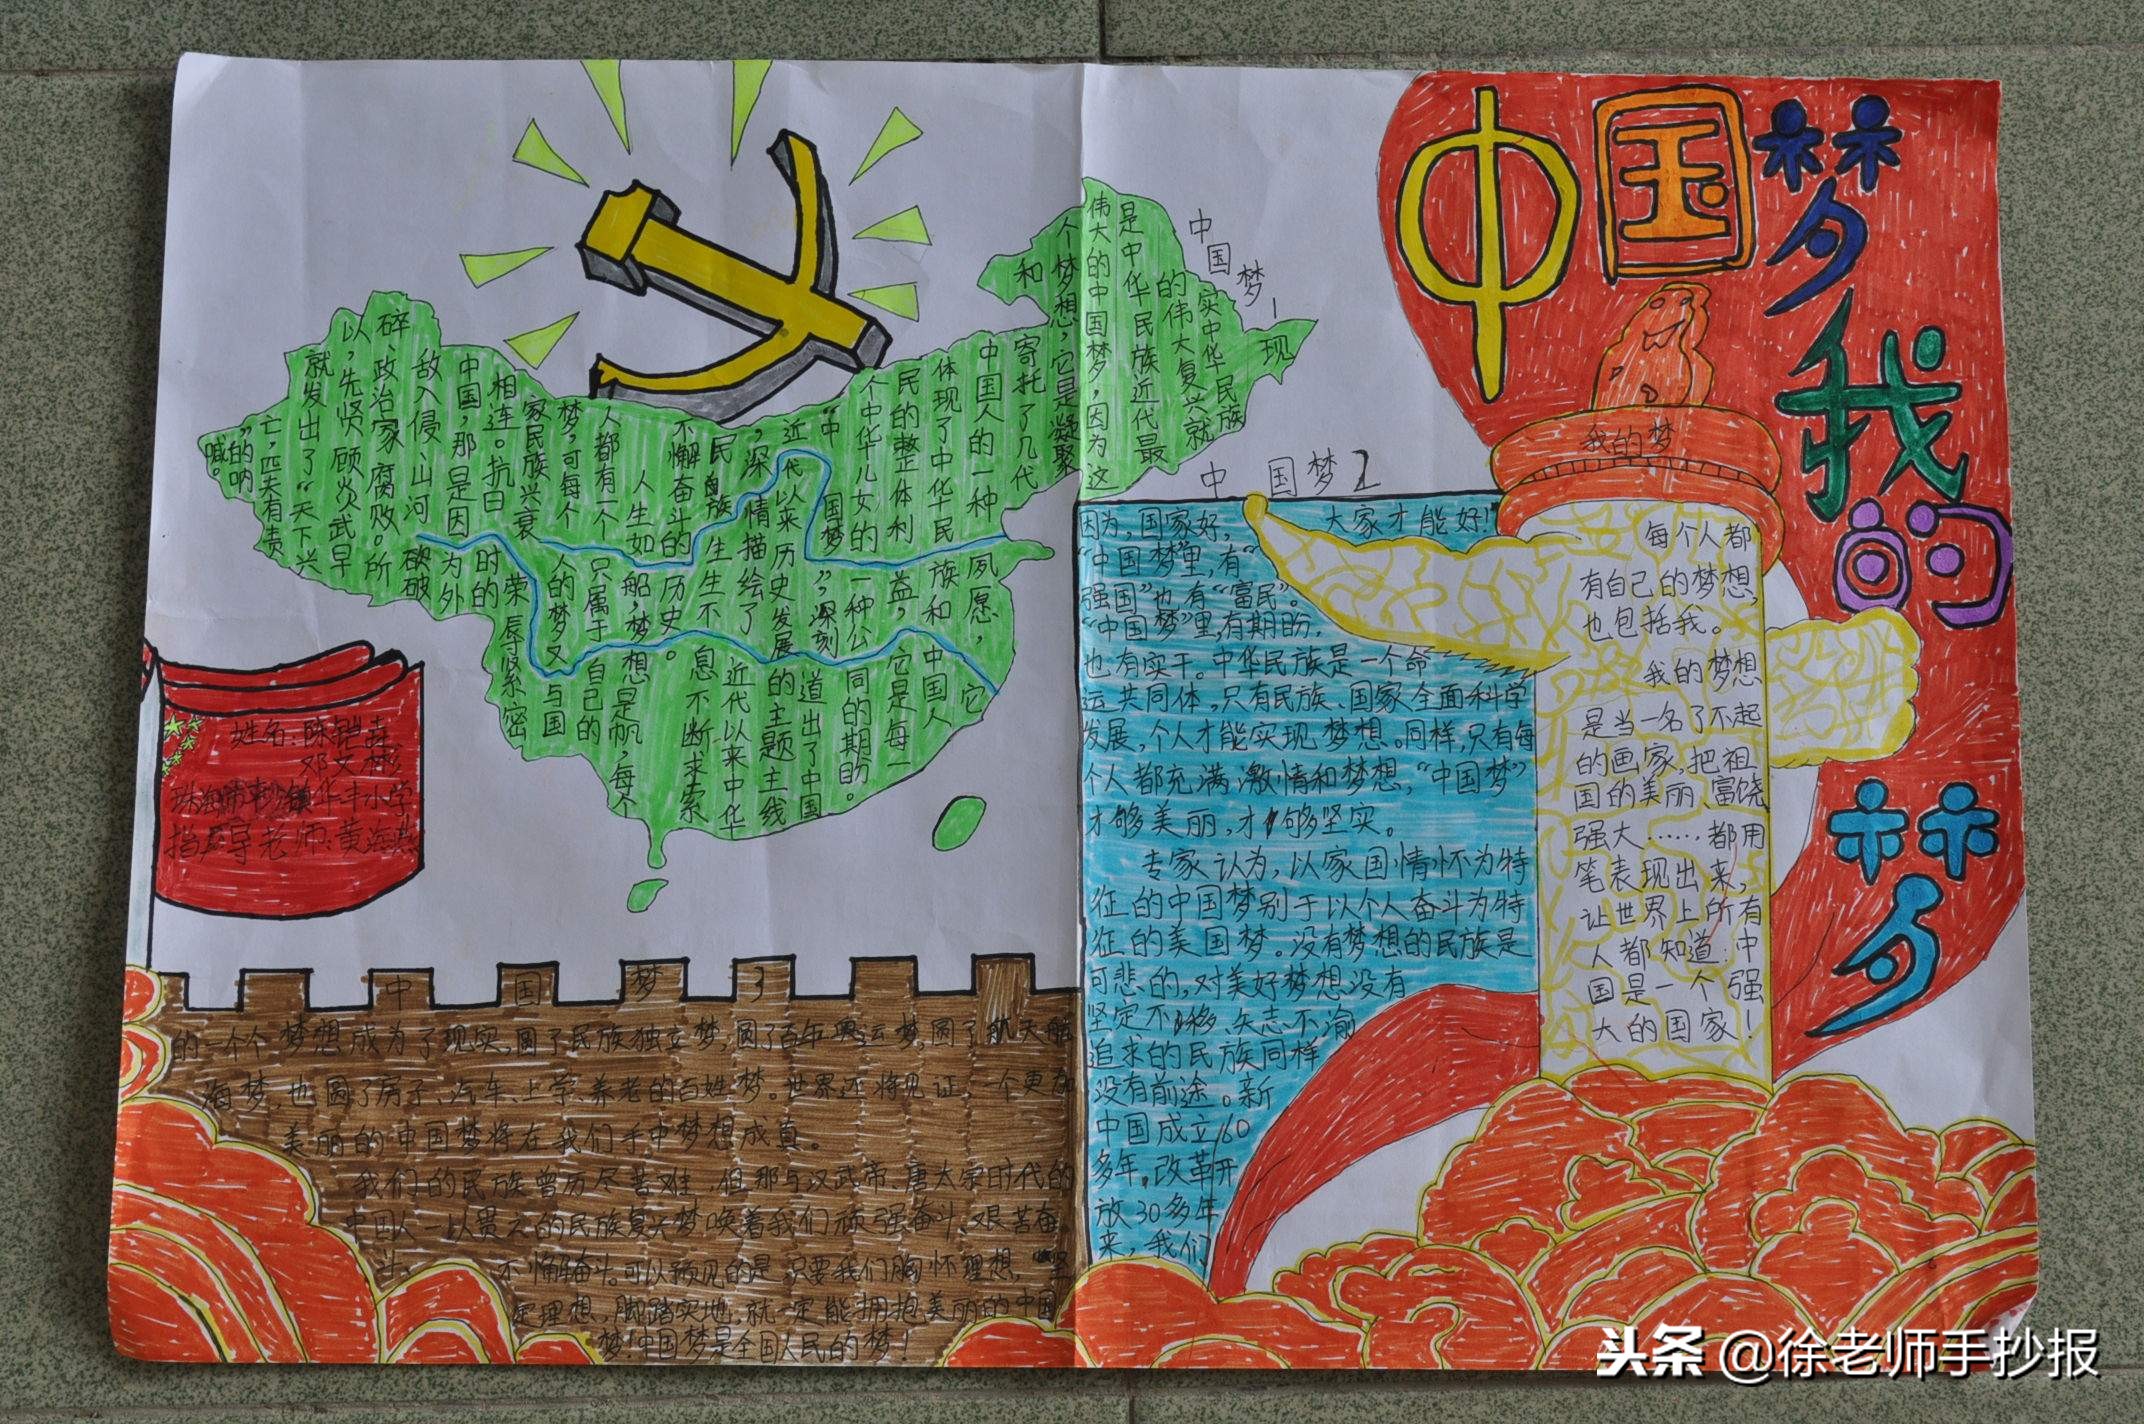 中国梦我的梦
中国梦1
实现中华民族
的伟大复兴就
是中华民族近代最
伟大的中国梦,因为这
个梦想,它是凝聚
和寄托了几代
中国人的一种夙愿,它
体现了中华民族和中国人
民的整体利益,它是每一
个中华儿女的一种公同的期盼。
“中国梦”,深刻道出了中国
近代以来历史发展的主题主线
,深情描绘了近代以来中华
民族生生不息不断求索
不懈奋斗的历史。
人生如船,梦想是帆,每个
人都有一个只属于自己的
梦,可每个人的梦又与国
家民族兴衰荣辱紧密
相连。抗日时的
中国,那是因为外
敌入侵、山河破
碎、政治家腐败。所
以,先贤顾炎武早
就发出了“天下兴
亡,匹夫有责
”的呐
喊。
中国梦2
因为,国家好,大家才能好!”
“中国梦”里,有“
强国”也有“富民”。
“中国梦”里,有期盼,
也有实干。中华民族是一个命
运共同体,只有民族、国家全面科学
发展,个人才能实现梦想。同样,只有每
个人都充满激情和梦想,“中国梦”
才够美丽,才够坚实。
专家认为,以家国情怀为特
征的中国梦别于以个人奋斗为特
征的美国梦。没有梦想的民族是
可悲的,对美好梦想没有
坚定不移、矢志不渝
追求的民族同样
没有前途。新
中国成立60
多年,改革开
放30多年
来,我们
中国梦3
的一个个梦想成为了现实,圆了民族独立梦,圆了百年奥运梦,圆了航天航
海梦,也圆了房子、汽车、上学、养老的百姓梦。世界还将见证,一个更加
美丽的中国梦将在我们手中梦想成真。
我们的民族曾历尽苦难,但那与汉武帝、唐太宗时代的
中国人一以贯之的民族复兴梦唤着我们顽强奋斗、艰苦奋
斗、不懈奋斗。可以预见的是,只要我们胸怀理想,坚
定理想,脚踏实地,就一定能拥抱美丽的中国
梦!中国梦是全国人民的梦!
我的梦
每个人都
有自己的梦想,
也包括我。
我的梦想
是当一名了不起
的画家,把祖
国的美丽、富饶
强大……,都用
笔表现出来,
让世界上所有
人都知道:中
国是一个强
大的国家!
姓名:陈铠垚
邓文彬
华丰小学
指导老师:黄海
头条@徐老师手抄报